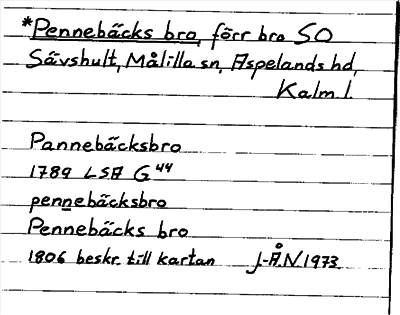 *Pennebäcks bro, förr bro SO
Sävshult, Målilla sn, Aspelands hd,
Kalm l.
Pannebäcksbro
1789 LSA G44
pennebäcksbro
Pennebäcks bro
1806 beskr. till kartan J-Å.N.1973.